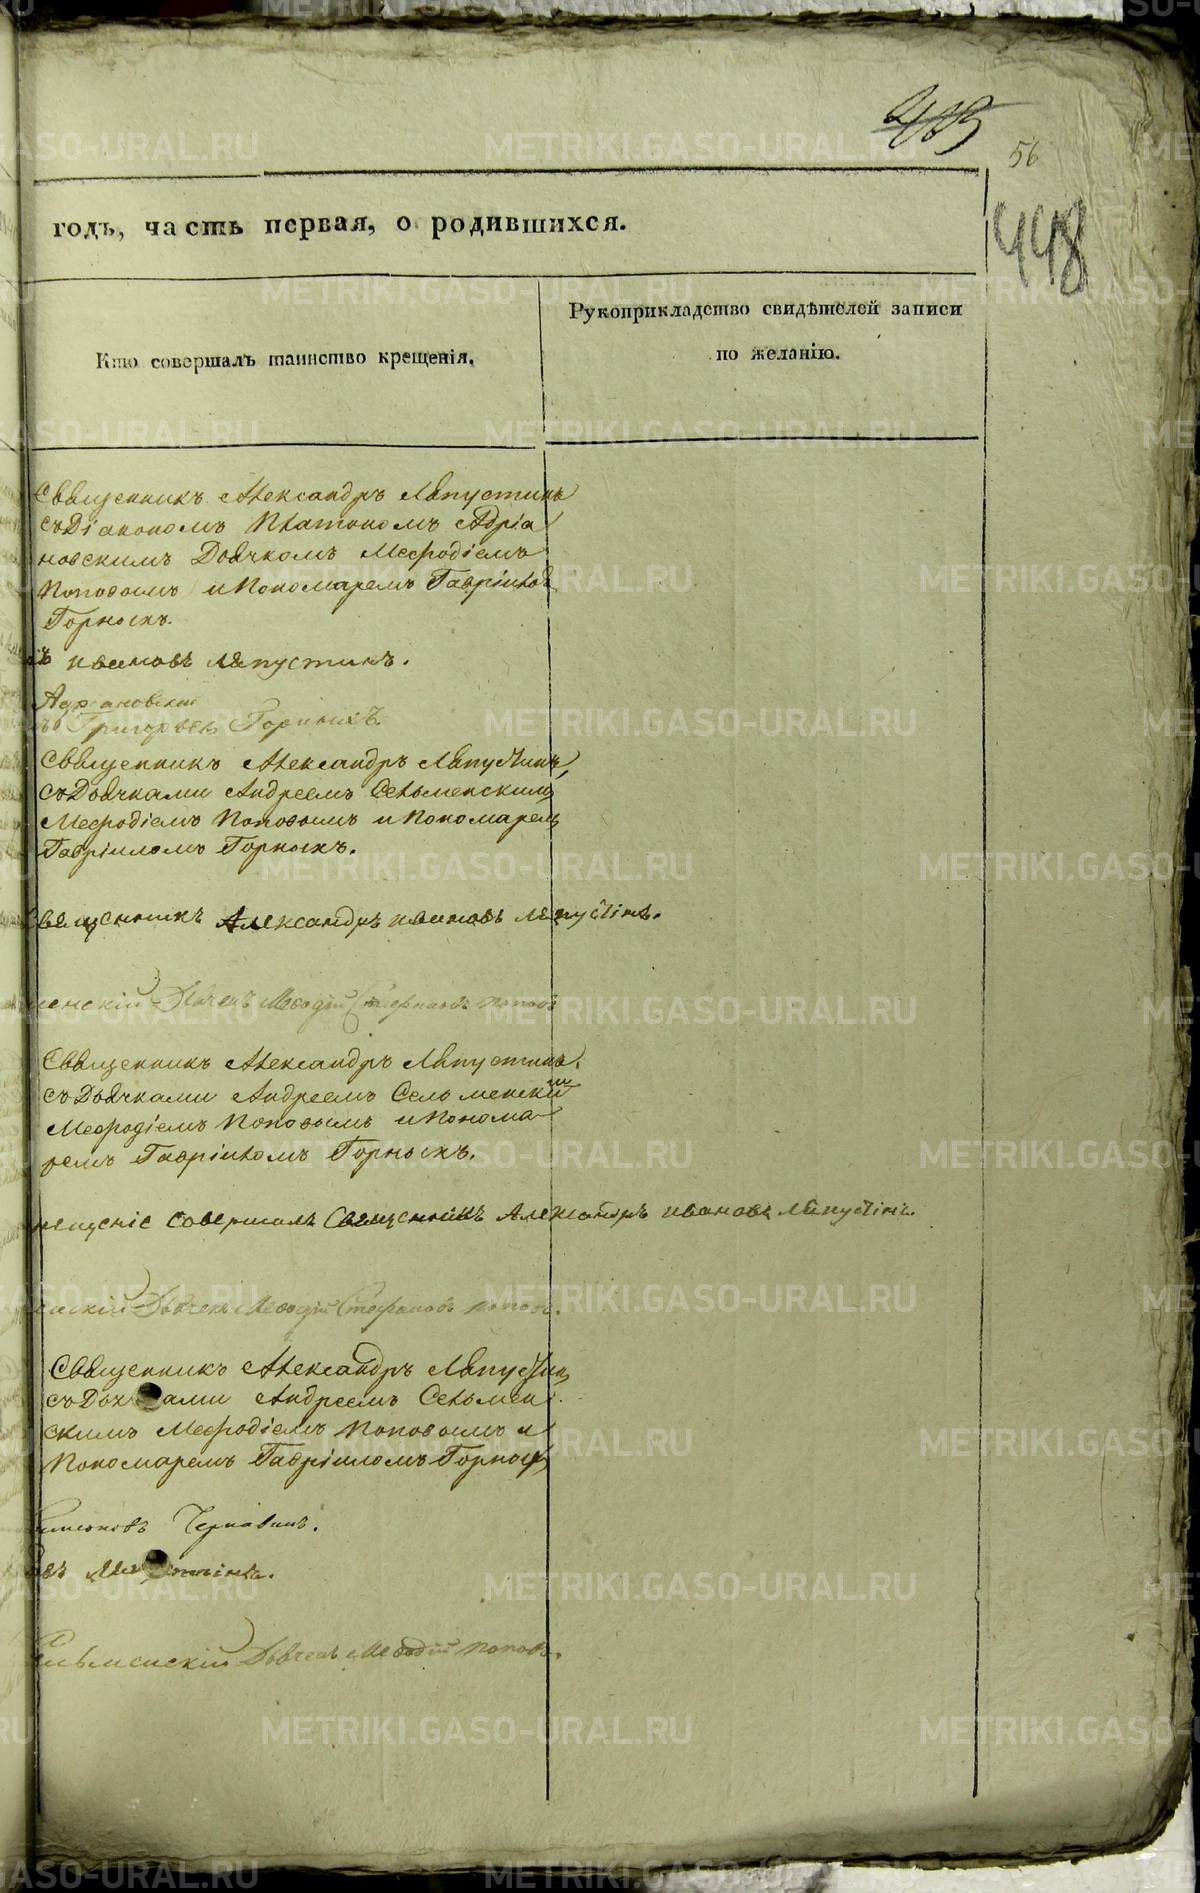 403
56
448
годъ, часть первая, о родившихся.
Кто совершалъ таинство крещенія.
Рукоприкладство свидѣтелей записи
по желанію.
Священникъ Александръ Ляпустинъ
съ Діакономъ Платономъ Адріа
новскимъ Дьячкомъ Меѳодіемъ
Поповымъ и Пономаремъ Гавріилом
Горныхъ.
ивановъ ляпустинъ.
Адриановский
Григорьевъ Горныхъ
Священникъ Александръ Ляпустинъ,
съ Дьячками Андреемъ Сельменскимъ
Меѳодіемъ Поповымъ и Пономарем
Гавріиломъ Горныхъ.
Священникъ Александръ ивановъ ляпустінъ.
менскій Дьячекъ Меѳодій Стефановъ поповъ
Священникъ Александръ Ляпустинъ.
съ Дьячками Андреемъ Сельменским
Меѳодіемъ Поповымъ и Понома
ремъ Гавріиломъ Горныхъ.
рещеніе совершалъ Священникъ Александръ ивановъ ляпустінъ.
нскій Дьячекъ Меѳодій Стефановъ поповъ.
Священникъ Александръ Ляпустин
съ Дья ами Андреемъ Сельмен
скимъ Меѳодіемъ Поповымъ и
Пономаремъ Гавріиломъ Горных
Симеоновъ Чернавинъ.
въ ляпустінъ.
Сельменскій Дьячекъ Меѳодій поповъ.
METRIKI.GASO-URAL.RU